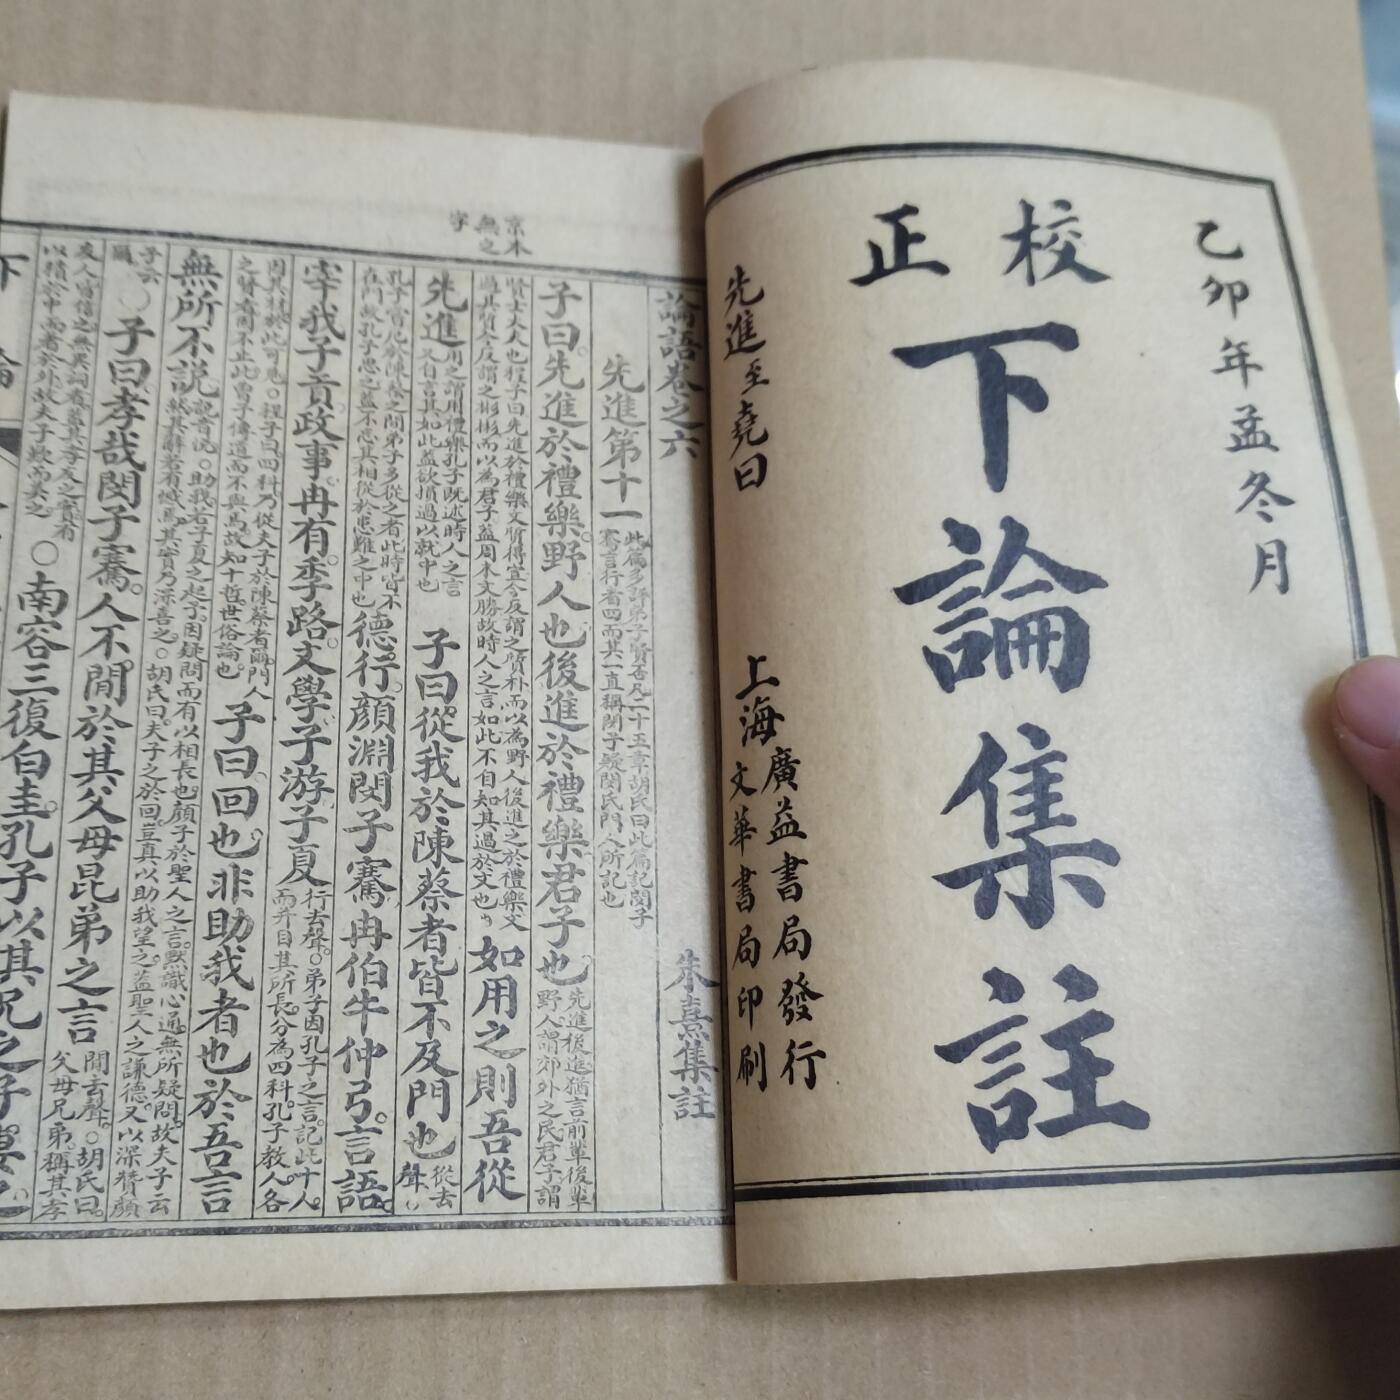 乙卯年孟冬月
校正
下論集註
先進至堯曰
上海廣益書局發行
文華書局印刷
京本
無之
字
論語卷之六
朱熹集註
先進第十一
此篇多評弟子賢否凡二十五章胡氏曰此篇記閔子
騫言行者四而其一直稱閔子疑閔氏門人所記也
子曰先進於禮樂野人也後進於禮樂君子也
先進後進猶言前輩後輩
野人謂郊外之民君子謂
賢士大夫也程子曰先進於禮樂文質得宜今反謂之質朴而以為野人後進之於禮樂文
過其質今反謂之彬彬而以為君子蓋周末文勝故時人之言如此不自知其過於文也
如用之則吾從
先進
用之謂用禮樂孔子既述時人之言
又自言其如此蓋欲損過以就中也
子曰從我於陳蔡者皆不及門也
從去
聲○
孔子嘗厄於陳蔡之間弟子多從之者此時皆不
在門故孔子思之蓋不忘其相從於患難之中也
德行顏淵閔子騫冉伯牛仲弓言語
宰我子貢政事冉有季路文學子游子夏
行去聲○弟子因孔子之言記此十人
而并目其所長分為四科孔子教人各
因其材於此可見○程子曰四科乃從夫子於陳蔡者爾門人
之賢者固不止此曾子傳道而不與焉故知十哲世俗論也
子曰回也非助我者也於吾言
無所不說
說音悅○助我若子夏之起予因疑問而有以相長也顏子於聖人之言默識心通無所疑問故夫子云
然其辭若有憾焉其實乃深喜之○胡氏曰夫子之於回豈真以助我望之蓋聖人之謙德又以深贊顏
子云
爾
○子曰孝哉閔子騫人不間於其父母昆弟之言
間去聲○胡氏曰
父母兄弟稱其孝
友人皆信之無異詞者蓋其孝友之實有
以積於中而著於外故夫子歎而美之
○南容三復白圭孔子以其兄之子妻之
下論